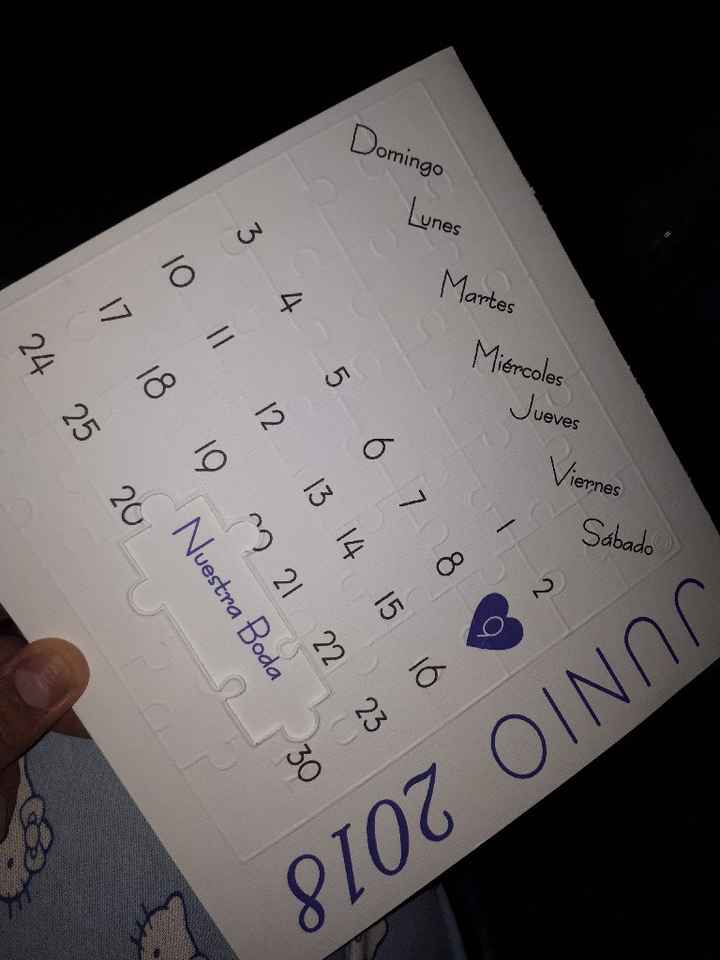 JUNIO 2018
Domingo Lunes Martes Miércoles Jueves Viernes Sábado
1 2
3 4 5 6 7 8 9
10 11 12 13 14 15 16
17 18 19 20 21 22 23
24 25 26 30
Nuestra Boda